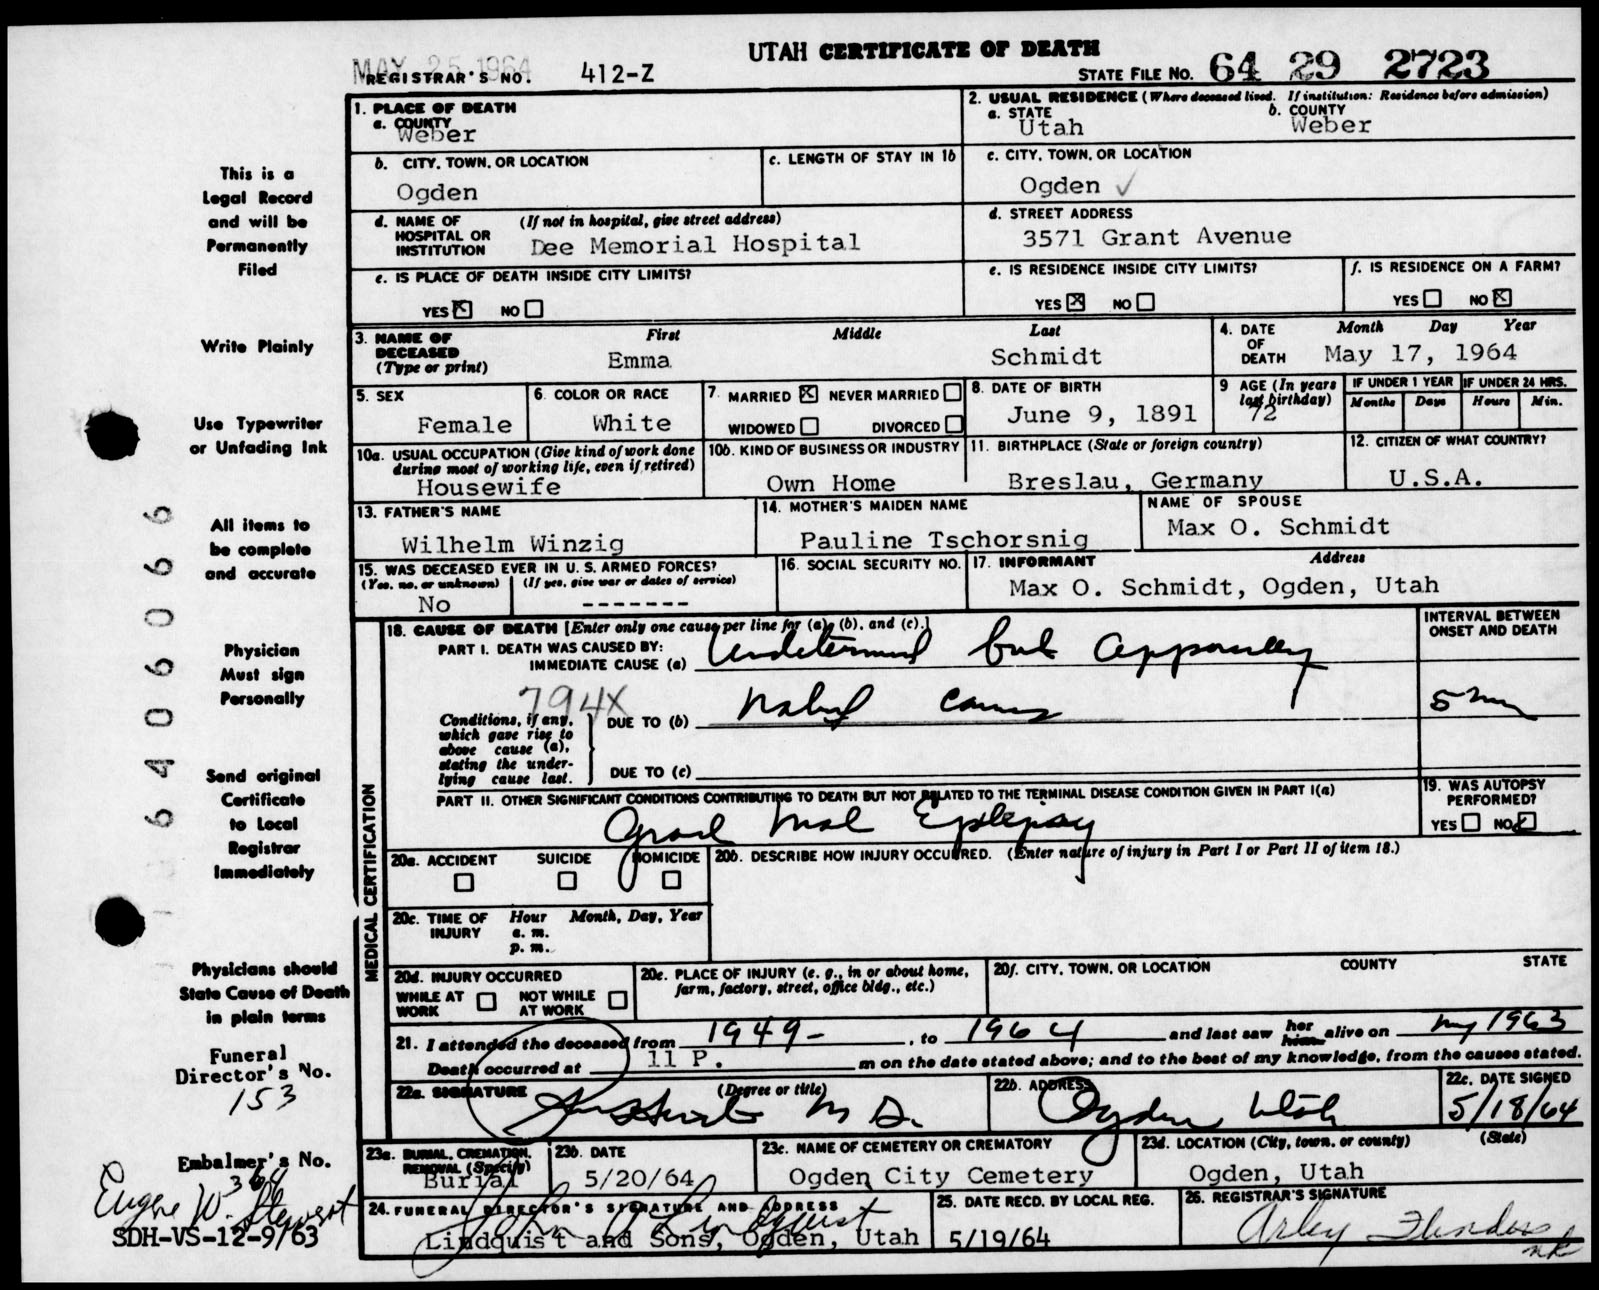 UTAH CERTIFICATE OF DEATH
MAY 25 1964
REGISTRAR'S NO. 412-Z
STATE FILE NO. 64 29 2723
1. PLACE OF DEATH
a. COUNTY
Weber
2. USUAL RESIDENCE (Where deceased lived. If institution: Residence before admission)
a. STATE b. COUNTY
Utah Weber
b. CITY, TOWN, OR LOCATION
Ogden
c. LENGTH OF STAY IN 1b
c. CITY, TOWN, OR LOCATION
Ogden ✓
d. NAME OF HOSPITAL OR INSTITUTION (If not in hospital, give street address)
Dee Memorial Hospital
d. STREET ADDRESS
3571 Grant Avenue
e. IS PLACE OF DEATH INSIDE CITY LIMITS?
YES ☒ NO ☐
e. IS RESIDENCE INSIDE CITY LIMITS?
YES ☒ NO ☐
f. IS RESIDENCE ON A FARM?
YES ☐ NO ☒
3. NAME OF DECEASED (Type or print)
First Middle Last
Emma Schmidt
4. DATE OF DEATH Month Day Year
May 17, 1964
5. SEX
Female
6. COLOR OR RACE
White
7. MARRIED ☒ NEVER MARRIED ☐
WIDOWED ☐ DIVORCED ☐
8. DATE OF BIRTH
June 9, 1891
9 AGE (In years last birthday)
72
IF UNDER 1 YEAR IF UNDER 24 HRS.
Months Days Hours Min.
10a. USUAL OCCUPATION (Give kind of work done during most of working life, even if retired)
Housewife
10b. KIND OF BUSINESS OR INDUSTRY
Own Home
11. BIRTHPLACE (State or foreign country)
Breslau, Germany
12. CITIZEN OF WHAT COUNTRY?
U.S.A.
13. FATHER'S NAME
Wilhelm Winzig
14. MOTHER'S MAIDEN NAME
Pauline Tschorsnig
NAME OF SPOUSE
Max O. Schmidt
15. WAS DECEASED EVER IN U. S. ARMED FORCES?
(Yes, no, or unknown) (If yes, give war or dates of service)
No -------
16. SOCIAL SECURITY NO.
17. INFORMANT Address
Max O. Schmidt, Ogden, Utah
MEDICAL CERTIFICATION
18. CAUSE OF DEATH [Enter only one cause per line for (a), (b), and (c).]
INTERVAL BETWEEN ONSET AND DEATH
PART I. DEATH WAS CAUSED BY:
IMMEDIATE CAUSE (a) Undetermined but apparently
794X
Conditions, if any, which gave rise to above cause (a), stating the underlying cause last.
DUE TO (b) natural causes
5 min
DUE TO (c)
PART II. OTHER SIGNIFICANT CONDITIONS CONTRIBUTING TO DEATH BUT NOT RELATED TO THE TERMINAL DISEASE CONDITION GIVEN IN PART I(a)
Grand Mal Epilepsy
19. WAS AUTOPSY PERFORMED?
YES ☐ NO ☑
20a. ACCIDENT SUICIDE HOMICIDE
☐ ☐ ☐
20b. DESCRIBE HOW INJURY OCCURRED. (Enter nature of injury in Part I or Part II of item 18.)
20c. TIME OF INJURY Hour Month, Day, Year
a. m.
p. m.
20d. INJURY OCCURRED
WHILE AT WORK ☐ NOT WHILE AT WORK ☐
20e. PLACE OF INJURY (e. g., in or about home, farm, factory, street, office bldg., etc.)
20f. CITY, TOWN, OR LOCATION COUNTY STATE
21. I attended the deceased from 1949- , to 1964 and last saw her him alive on 1963
Death occurred at 11 P. m on the date stated above; and to the best of my knowledge, from the causes stated.
22a. SIGNATURE (Degree or title)
M D.
22b. ADDRESS
Ogden Utah
22c. DATE SIGNED
5/18/64
23a. BURIAL, CREMATION, REMOVAL (Specify)
Burial
23b. DATE
5/20/64
23c. NAME OF CEMETERY OR CREMATORY
Ogden City Cemetery
23d. LOCATION (City, town, or county) (State)
Ogden, Utah
24. FUNERAL DIRECTOR'S SIGNATURE AND ADDRESS
John A Lindquist
Lindquist and Sons, Ogden, Utah
25. DATE RECD. BY LOCAL REG.
5/19/64
26. REGISTRAR'S SIGNATURE
Arley Flinders
nk
This is a
Legal Record
and will be
Permanently
Filed
Write Plainly
Use Typewriter
or Unfading Ink
All items to
be complete
and accurate
Physician
Must sign
Personally
Send original
Certificate
to Local
Registrar
Immediately
Physicians should
State Cause of Death
in plain terms
Funeral
Director's No.
153
Embalmer's No.
364
Eugene W. Stewart
SDH-VS-12-9/63
6406066